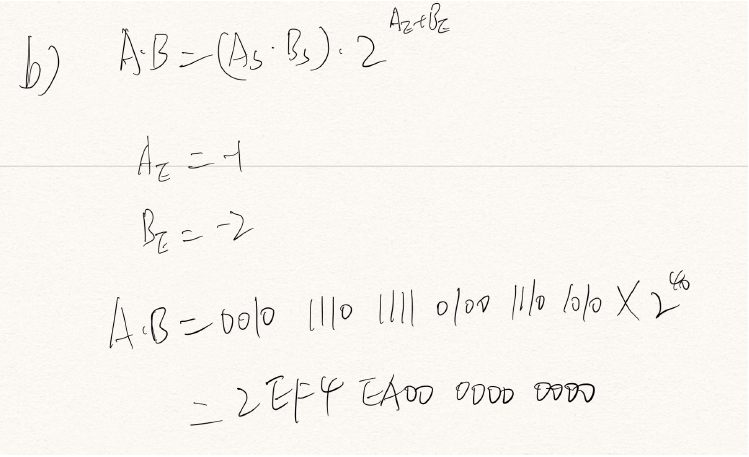 b) A·B = (As · Bs) · 2^(AE+BE)
AE = -1
BE = -2
A·B = 0010 1110 1111 0100 1110 1010 × 2^40
= 2EF4 EA00 0000 0000